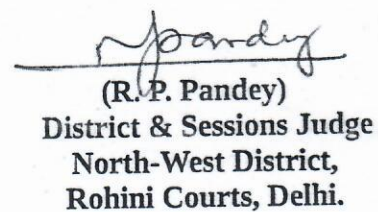 RPandey
(R. P. Pandey)
District & Sessions Judge
North-West District,
Rohini Courts, Delhi.